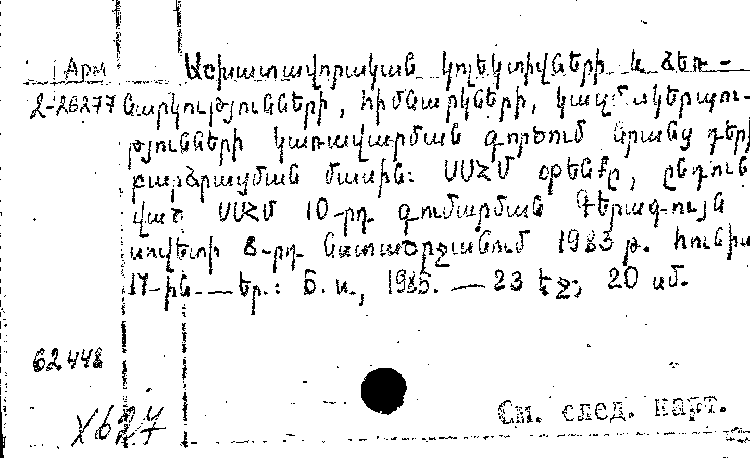 Арм Աշխատավորական կոլեկտիվների և ձեռ-
2-26277 նարկությունների, հիմնարկների, կազմակերպու-
թյունների կառավարման գործում նրանց դերի
բարձրացման մասին: ՍՍՀՄ օրենքը, ընդուն
ված ՍՍՀՄ 10-րդ գումարման Գերագույն
սովետի 8-րդ նստաշրջանում 1983 թ. հունիս
17-ին. — Եր.: Б. и., 1985. — 23 էջ; 20 սմ.
62448
X627
См. след. карт.